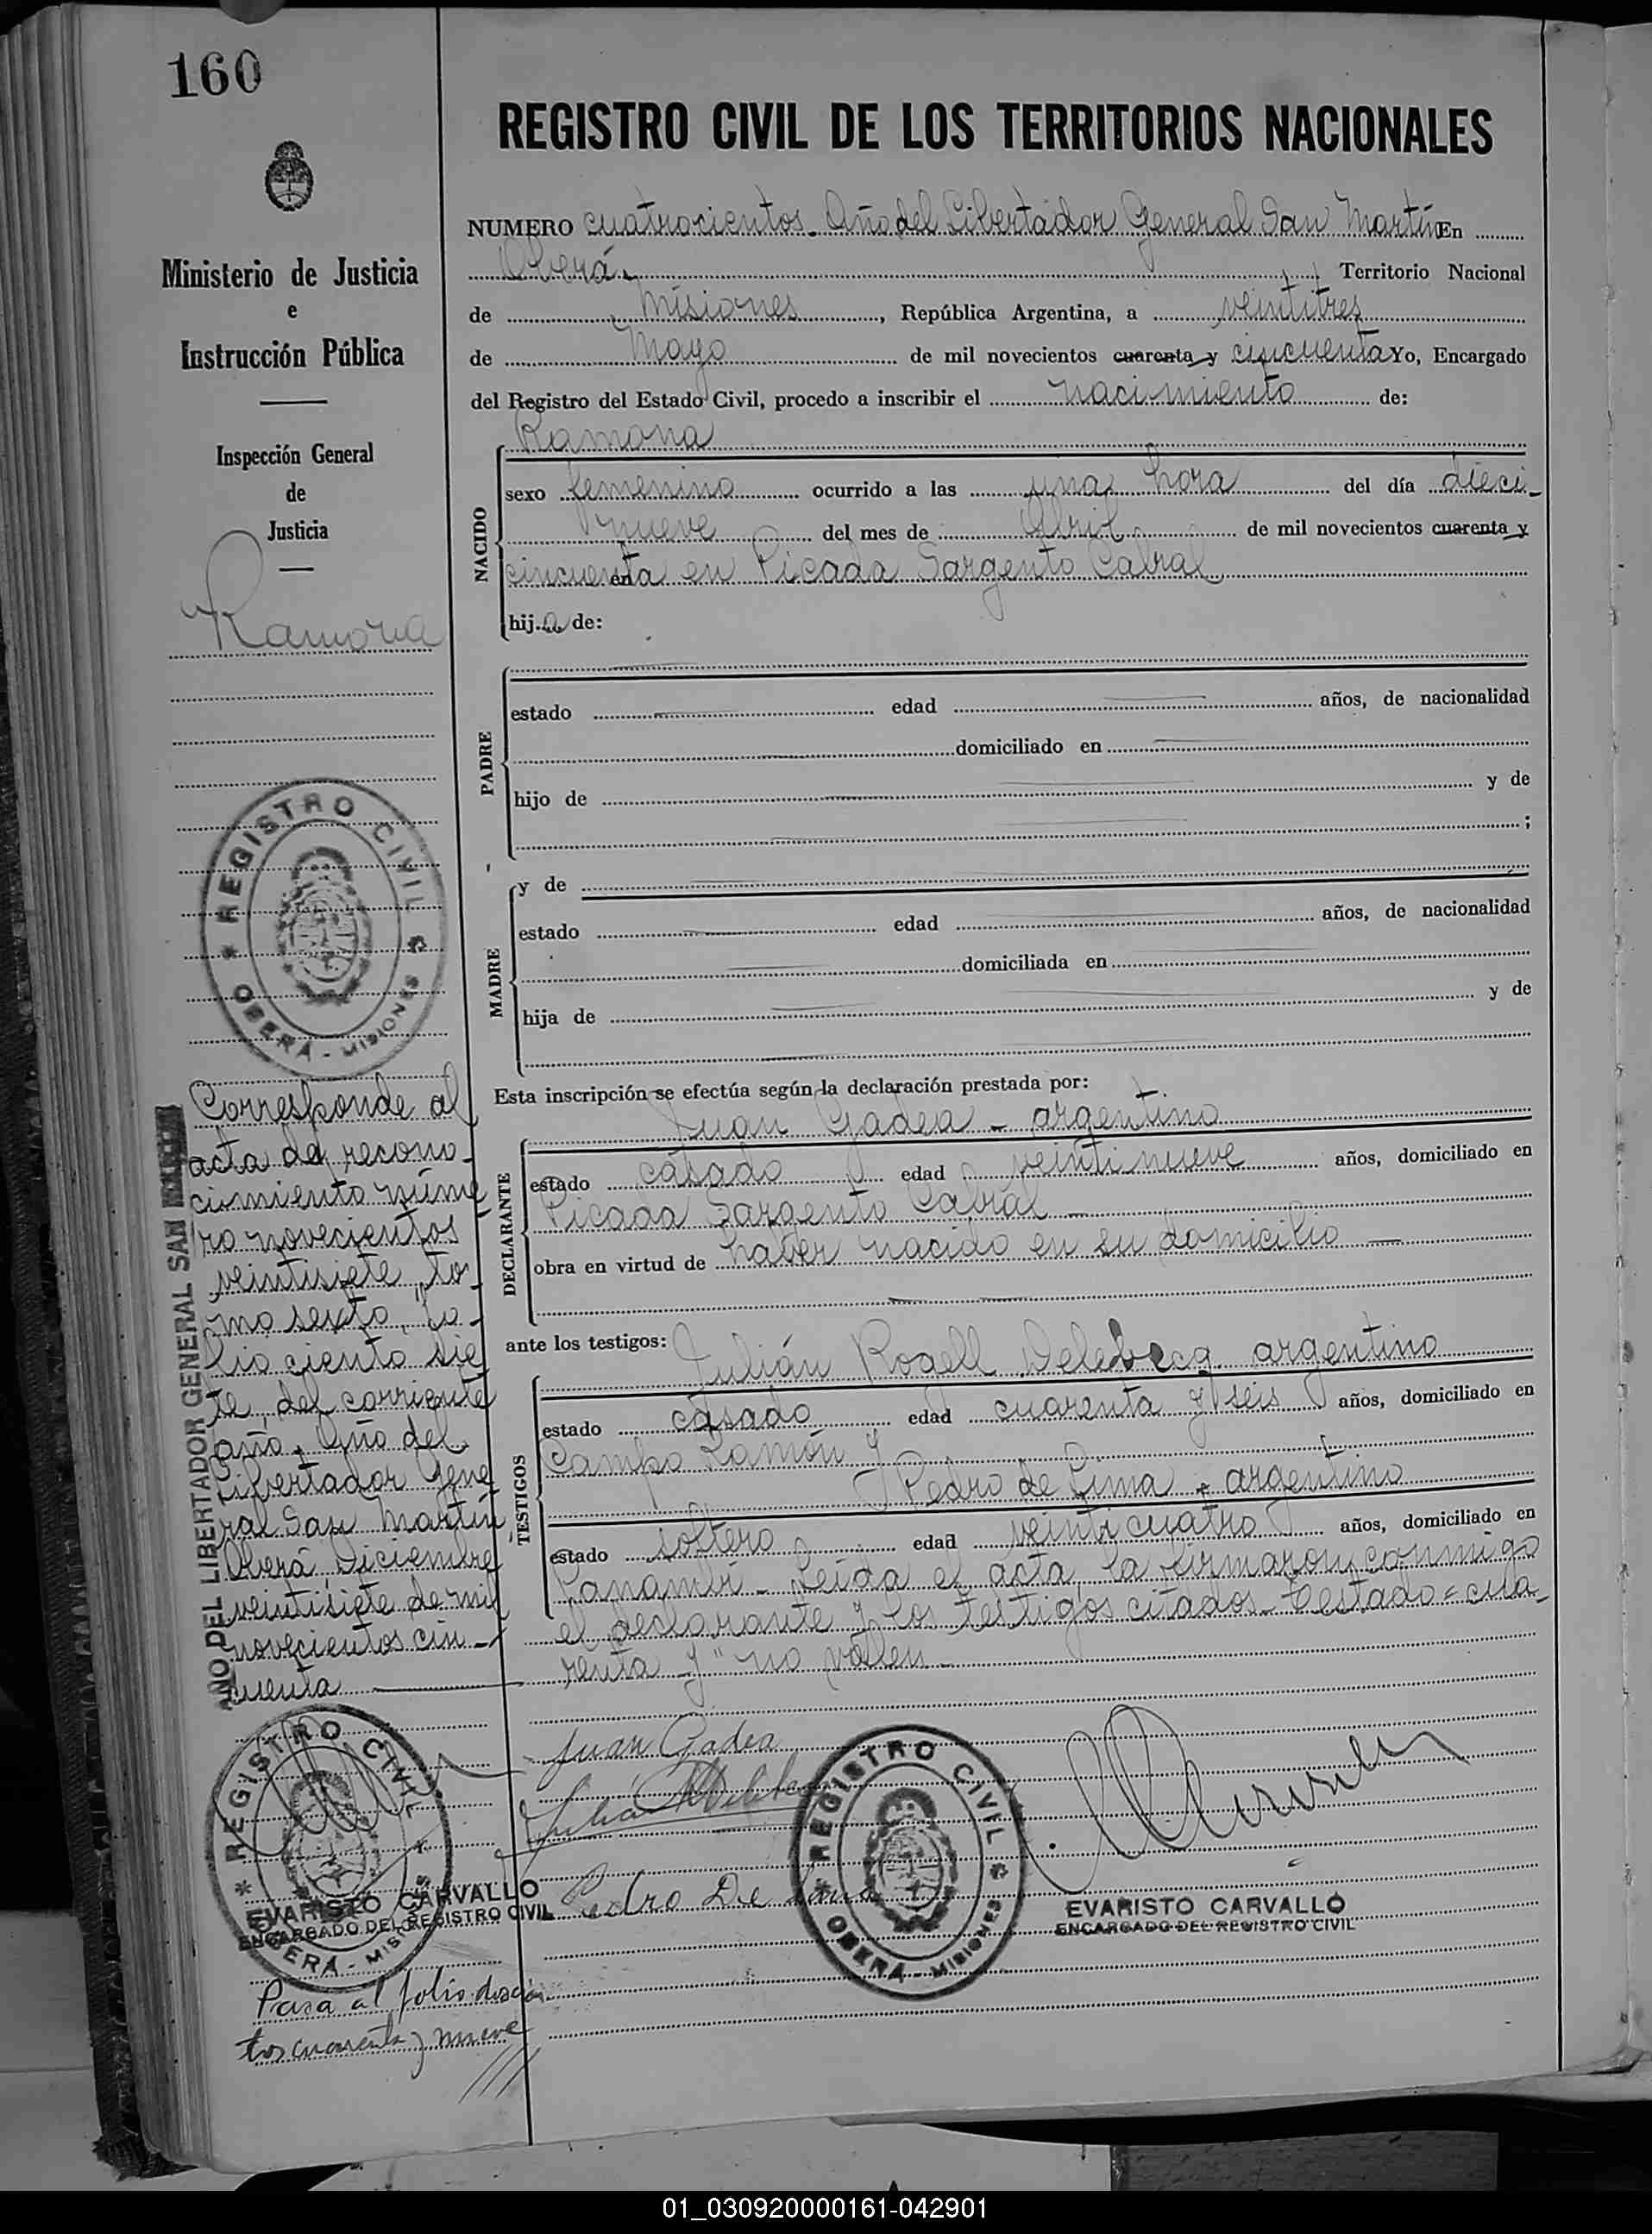 160
REGISTRO CIVIL DE LOS TERRITORIOS NACIONALES
Ministerio de Justicia
e
Instrucción Pública
Inspección General
de
Justicia
Ramona
REGISTRO CIVIL
OBERÁ - MISIONES
AÑO DEL LIBERTADOR GENERAL SAN
Corresponde al
acta de recono-
cimiento núme
ro novecientos
veintisiete, to-
mo sexto, fo-
lio ciento sie
te, del corriente
año. Año del
Libertador Gene
ral San Martín
Oberá, Diciembre
veintisiete de mil
novecientos cin-
cuenta
REGISTRO CIVIL
OBERÁ - MISIONES
EVARISTO CARVALLO
ENCARGADO DEL REGISTRO CIVIL
Pasa al folio doscien
tos cuarenta y nueve
NUMERO cuatrocientos. Año del Libertador General San Martín En
Oberá. Territorio Nacional
de Misiones, República Argentina, a veintitres
de Mayo de mil novecientos cuarenta y cincuenta Yo, Encargado
del Registro del Estado Civil, procedo a inscribir el nacimiento de:
Ramona
NACIDO
sexo femenino ocurrido a las una hora del día dieci-
nueve del mes de Abril de mil novecientos cuarenta y
cincuenta en Picada Sargento Cabral
hija de:
PADRE
estado edad años, de nacionalidad
domiciliado en
hijo de y de
;
MADRE
y de
estado edad años, de nacionalidad
domiciliada en
hija de y de
Esta inscripción se efectúa según la declaración prestada por:
Juan Gadea - argentino
DECLARANTE
estado casado edad veintinueve años, domiciliado en
Picada Sargento Cabral
obra en virtud de haber nacido en su domicilio
ante los testigos: Julián Rogell Delebecq argentino
TESTIGOS
estado casado edad cuarenta y seis años, domiciliado en
Campo Ramón y
Pedro de Lima - argentino
estado soltero edad veinticuatro años, domiciliado en
Panambí - Leída el acta, la firmaron conmigo
el declarante y los testigos citados - Testado = cua-
renta y" no valen -
Juan Gadea
Pedro De Lima
REGISTRO CIVIL
OBERÁ - MISIONES
EVARISTO CARVALLO
ENCARGADO DEL REGISTRO CIVIL
01_030920000161-042901